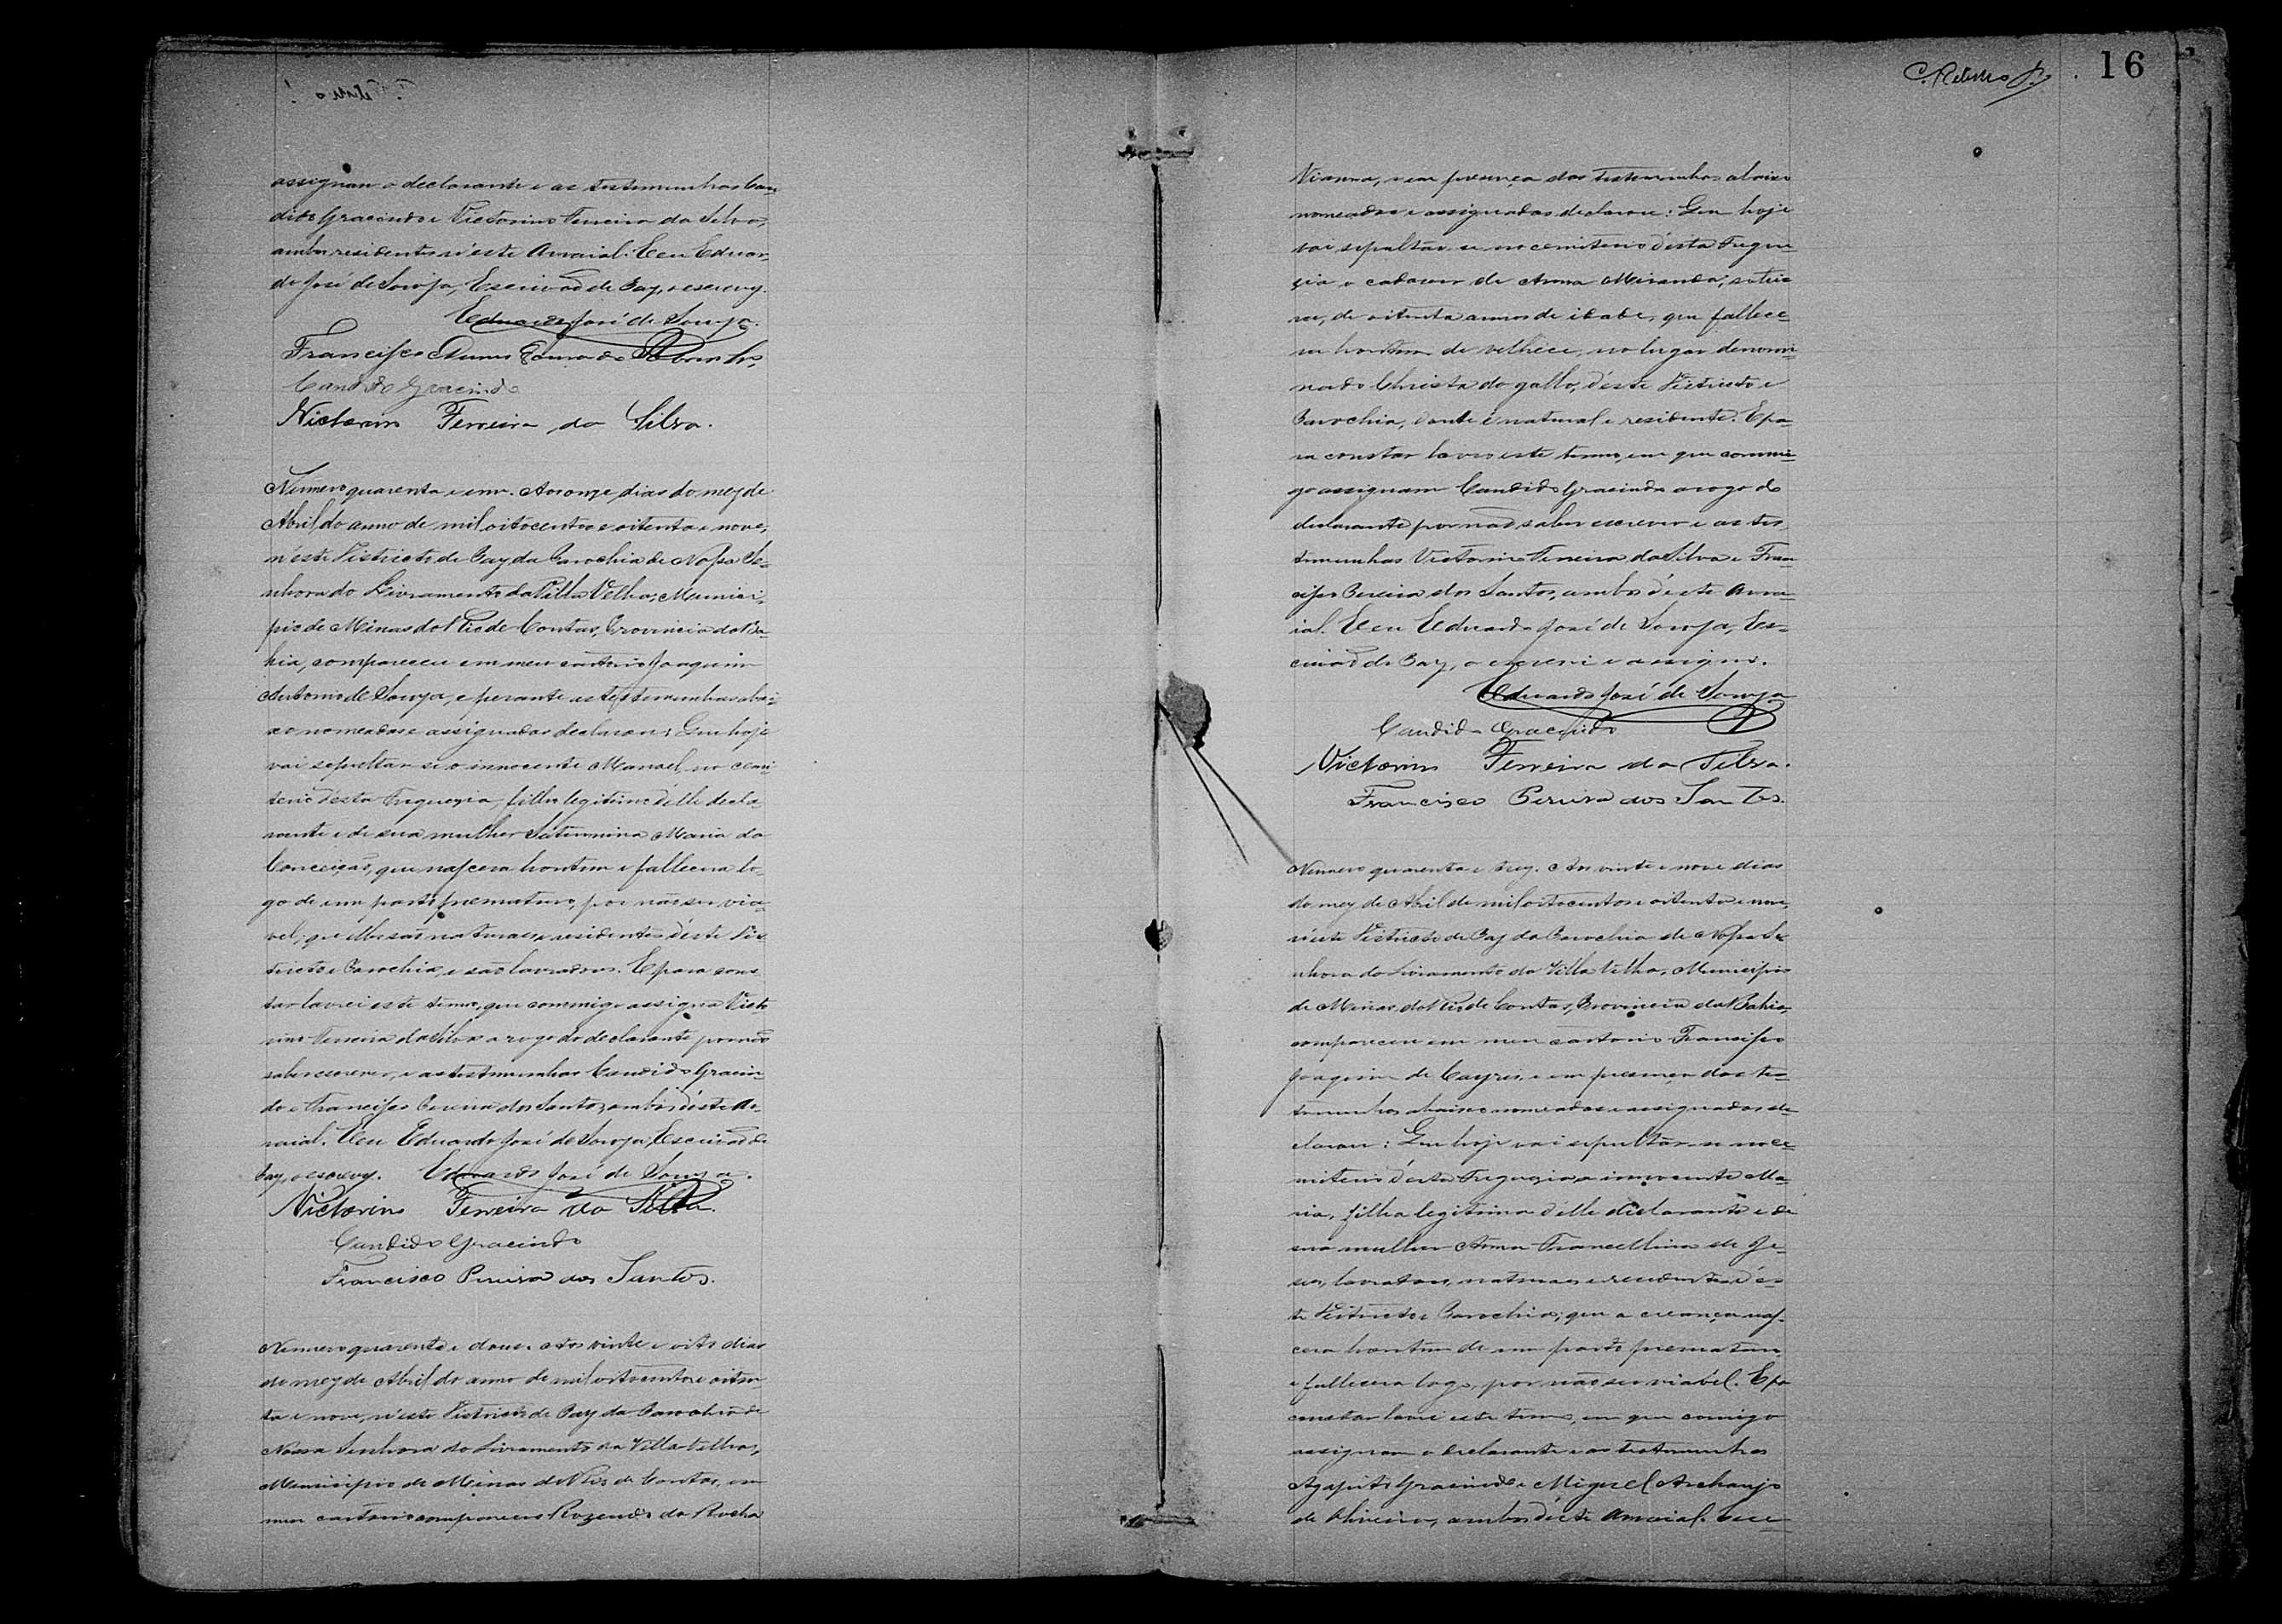 assignam o declarante e as testemunhas Can
dido Gracindo e Victorino Ferreira da Silva,
ambos residentes n'este Arraial. E eu Eduar-
do José de Souza, Escrivão de Paz, o escrevy.
Eduardo José de Souza.
Francisco
Candido Gracindo
Victorino Ferreira da Silva.
Numero quarenta e um. Aos onze dias do mez de
Abril do anno de mil oitocentos e oitenta e nove,
n'este Districto de Paz da Parochia de Nossa Se-
nhora do Livramento da Villa Velha, Munici-
pio de Minas do Rio de Contas, Provincia da Ba-
hia, compareceu em meu cartorio Joaquim
Antonio de Souza, e perante as testemunhas abai-
xo nomeadas e assignadas declarou: Que hoje
vai sepultar-se o innocente Manoel, no cemi-
terio d'esta Freguezia, filho legitimo d'elle decla-
rante e de sua mulher Saturnina Maria da
Conceição, que nascera hontem e fallecera lo-
go de um parto prematuro, por não ser via-
vel; que elles são naturaes e residentes d'este Dis
tricto e Parochia, e são lavradores. E para cons
tar lavrei este termo, que commigo assigna Victo
rino Ferreira da Silva a rogo do declarante por não
saber escrever, e as testemunhas Candido Gracin-
do e Francisco Pereira dos Santos, ambos d'este Ar-
raial. E eu Eduardo José de Souza, Escrivão de
Paz, o escrevy. Eduardo José de Souza.
Victorino Ferreira da Silva.
Candido Gracindo
Francisco Pereira dos Santos.
Numero quarenta e dous. Aos vinte e oito dias
do mez de Abril do anno de mil oitocentos e oiten-
ta e nove, n'este Districto de Paz da Parochia de
Nossa Senhora do Livramento da Villa Velha,
Municipio de Minas do Rio de Contas, em
meu cartorio compareceu Rozendo da Rocha
16
Vianna, e em presença das testemunhas abaixo
nomeadas e assignadas declarou: Que hoje
vai sepultar-se no cemiterio d'esta Fregue
zia o cadaver de Anna Miranda, soltei
ra, de oitenta annos de idade, que fallece-
ra hontem de velhice, no lugar denomi-
nado Christa do gallo, d'este Districto e
Parochia, d'onde é natural e residente. E pa-
ra constar lavro este termo, em que commi-
go assignam Candido Gracindo a rogo do
declarante por não saber escrever e as tes
temunhas Victorino Ferreira da Silva e Fran
cisco Pereira dos Santos, ambos d'este Arra-
ial. E eu Eduardo José de Souza, Es-
crivão de Paz, o escrevi e assigno.
Eduardo José de Souza
Candido Gracindo
Victorino Ferreira da Silva.
Francisco Pereira dos Santos.
Numero quarenta e trez. Aos vinte e nove dias
do mez de Abril de mil oitocentos e oitenta e nove,
n'este Districto de Paz da Parochia de Nossa Se
nhora do Livramento da Villa Velha, Municipio
de Minas do Rio de Contas, Provincia da Bahia,
compareceu em meu cartorio Francisco
Joaquim de Cayres, e em presença das tes-
temunhas abaixo nomeadas e assignadas de
clarou: Que hoje vai sepultar-se no ce-
miterio d'esta Freguezia a innocente Ma-
ria, filha legitima d'elle declarante e de
sua mulher Anna Francellina de Je-
sus, lavradores, naturaes e residentes d'es-
te Districto e Parochia; que a creança nas-
cera hontem de um parto prematuro
e fallecera logo, por não ser viavel. E pa
constar lavrei este termo, em que comigo
assignam o declarante e as testemunhas
Agapito Gracindo e Miguel Archanjo
de Oliveira, ambos d'este Arraial. E eu